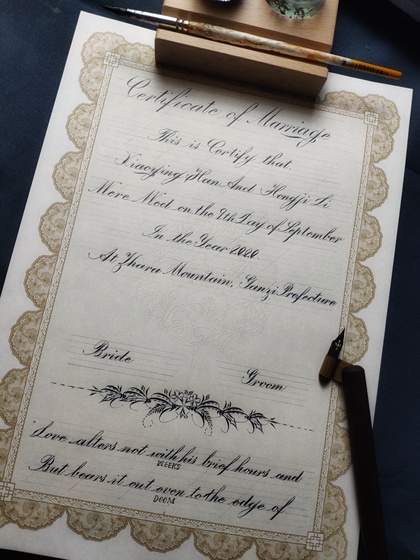 Certificate of Marriage
This is Certify that
Xiaoying Han And Hongji Li
Were Meet on the 9th Day of September
In the Year 2020
At Zhara Mountain, Ganzi Prefecture
Bride
Groom
Love alters not with his brief hours and
WEEKS
But bears it out even to the edge of
DOOM